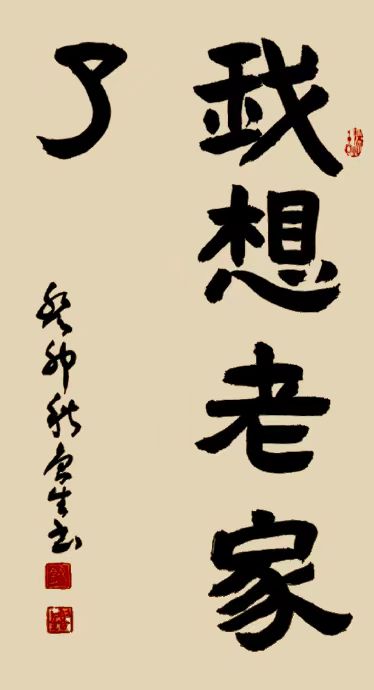 我想老家
了
癸卯秋生书